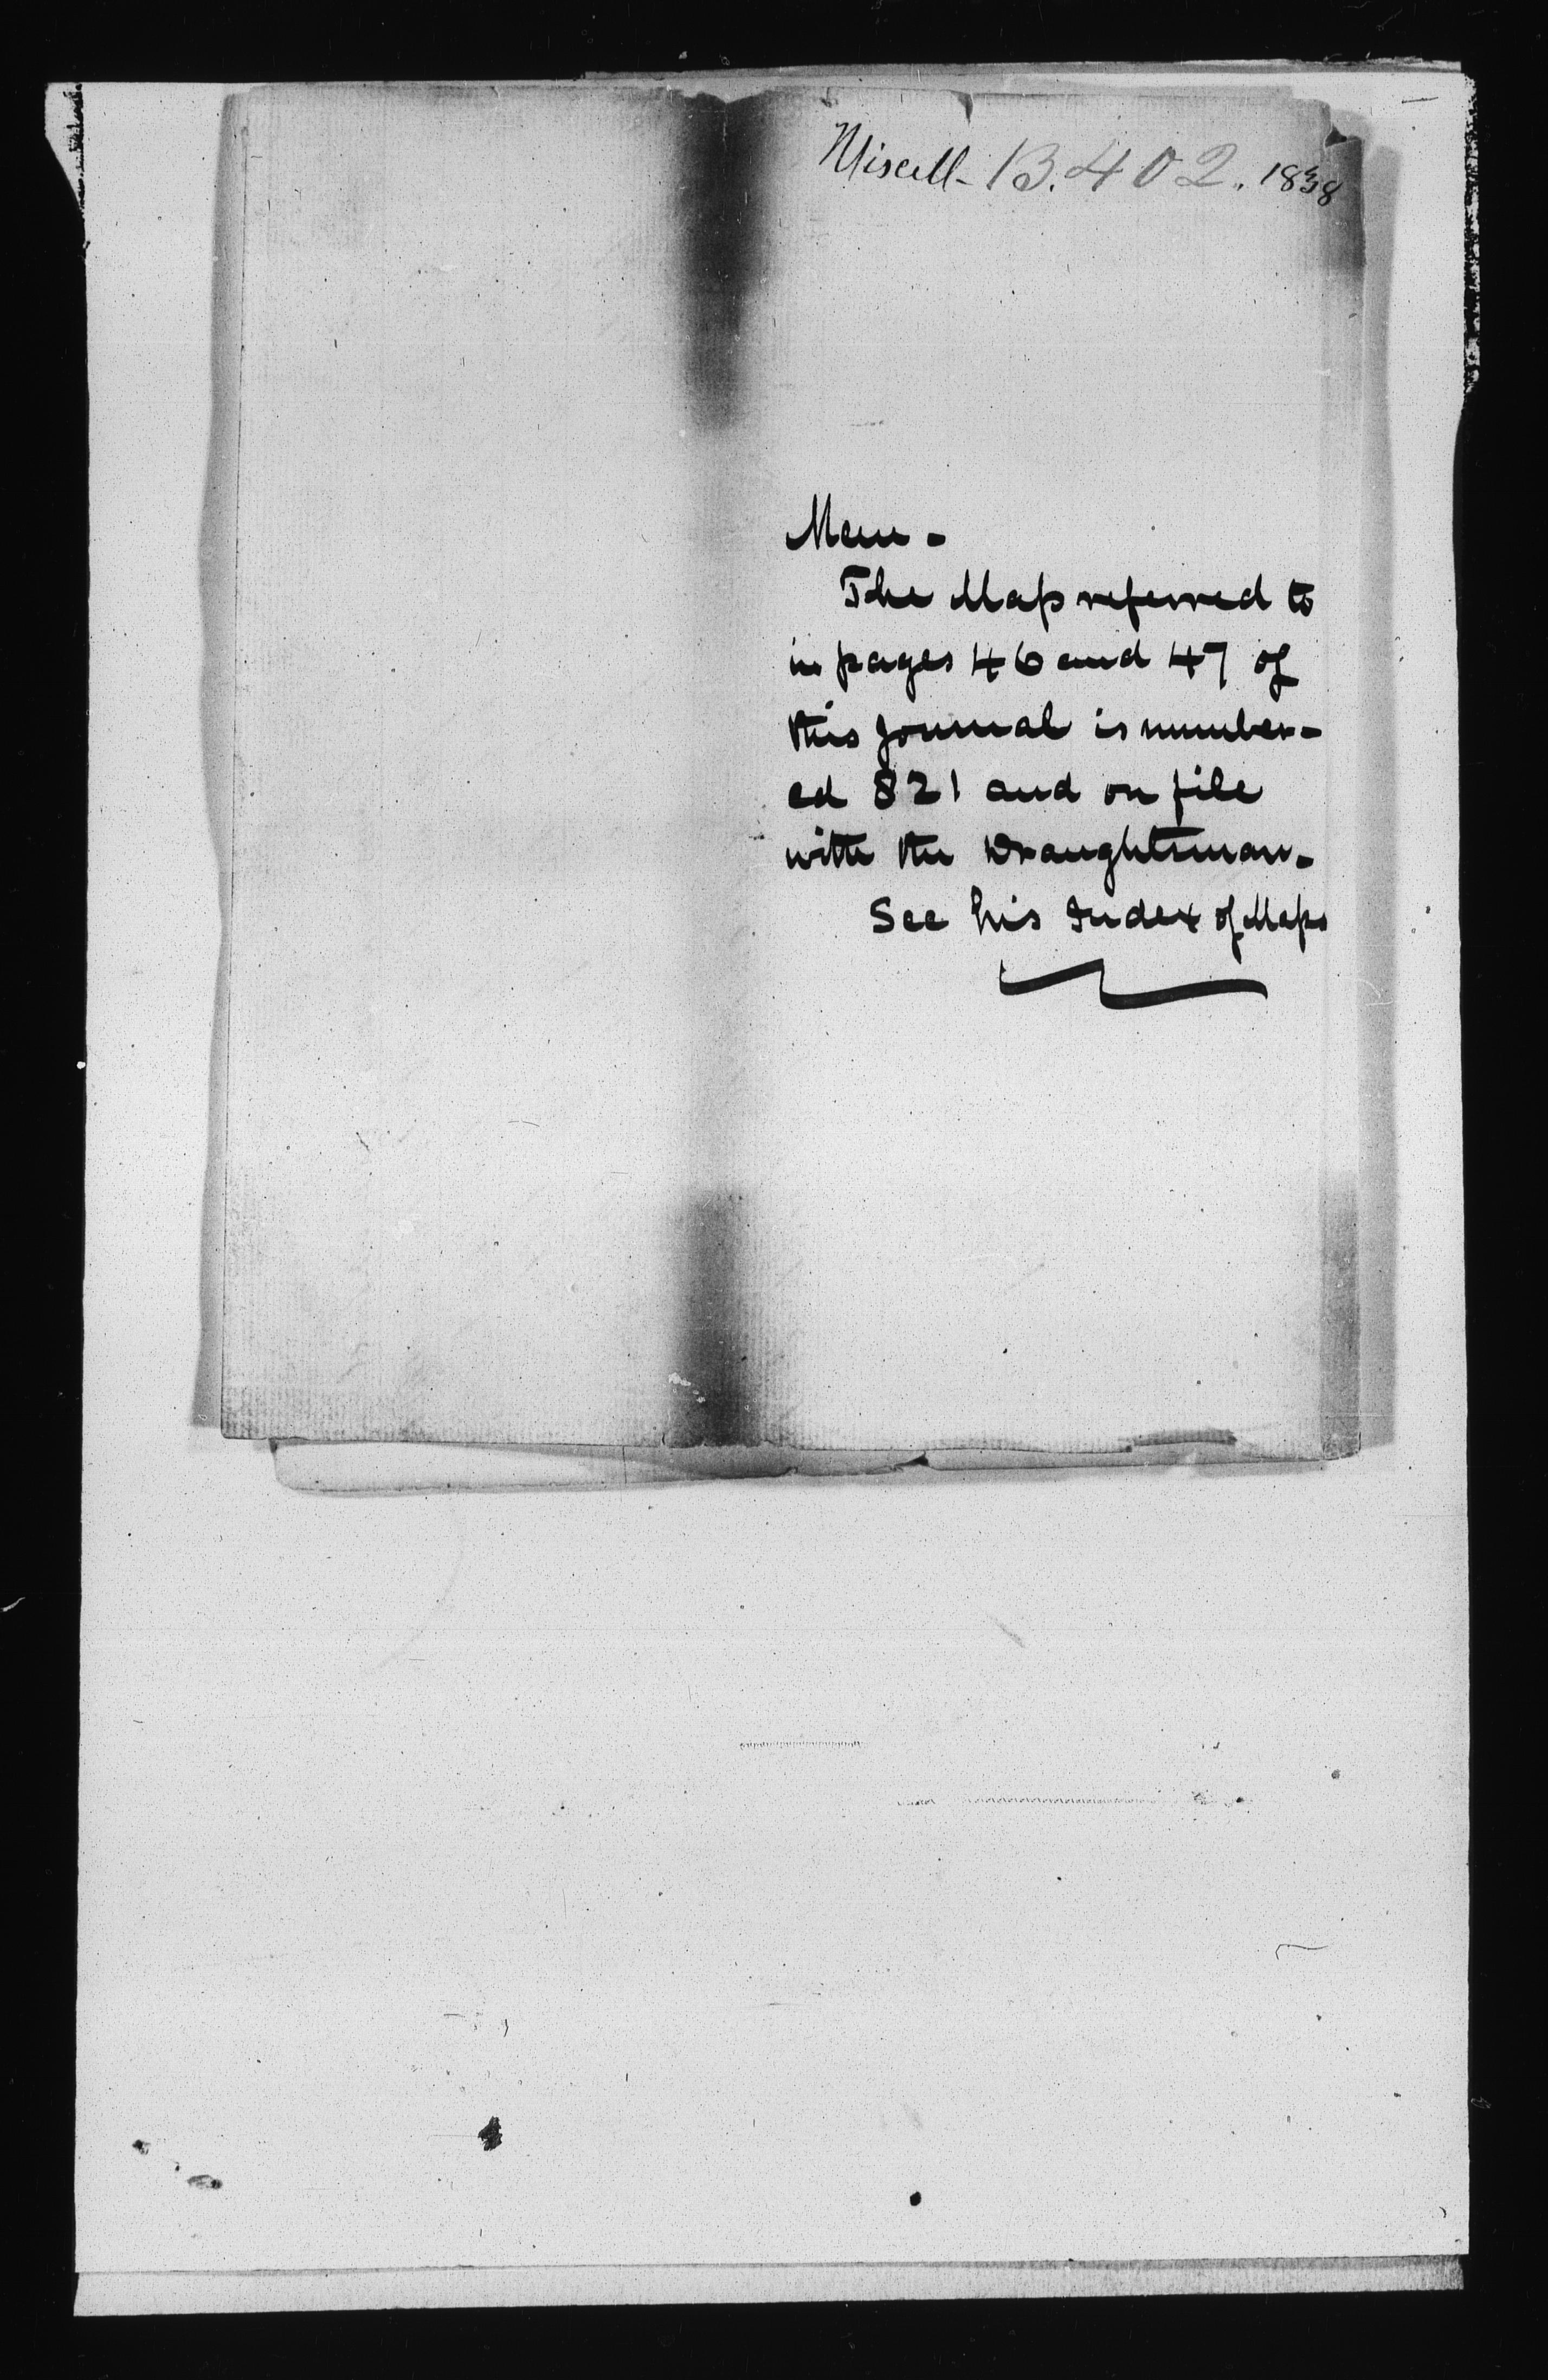 Miscell- B. 402. 1838
Mem -
The Map referred to
in pages 46 and 47 of
this journal is number-
ed 821 and on file
with the Draughtsman.
See his Index of Maps